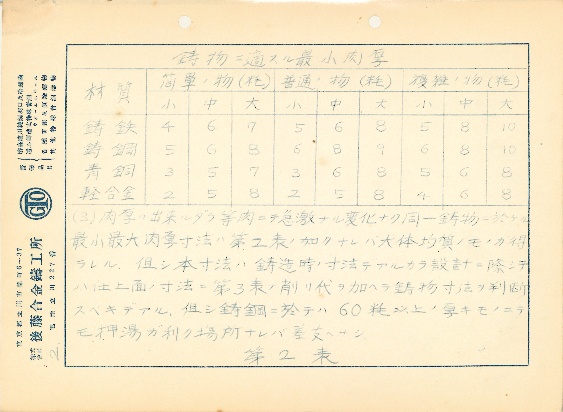 鋳物ニ適スル最小肉厚
材質 簡単ノ物(粍) 普通ノ物(粍) 複雑ノ物(粍)
小 中 大 小 中 大 小 中 大
鋳鉄 4 6 7 5 6 8 5 8 10
鋳鋼 5 6 8 6 8 9 6 8 10
青銅 3 5 7 3 6 8 5 6 8
軽合金 2 5 8 2 5 8 4 6 8
(3)肉厚ハ出来ルダケ等肉ニテ急激ナル変化ナク同一鋳物ニ於ケル
最小最大肉厚寸法ハ第2表ノ如クナレバ大体均質ノモノガ得
ラレル、但シ本寸法ハ鋳造時ノ寸法デアルカラ設計ニ際シテ
ハ仕上面ノ寸法ニ第3表ノ削リ代ヲ加ヘテ鋳物寸法ヲ判断
スベキデアル、但シ鋳鋼ニ於テハ60粍以上ノ厚キモノニテ
モ押湯ガ利ク場所ナレバ差支ヘナシ
第2表
GTO
後藤合金鋳工所
東京都立川市